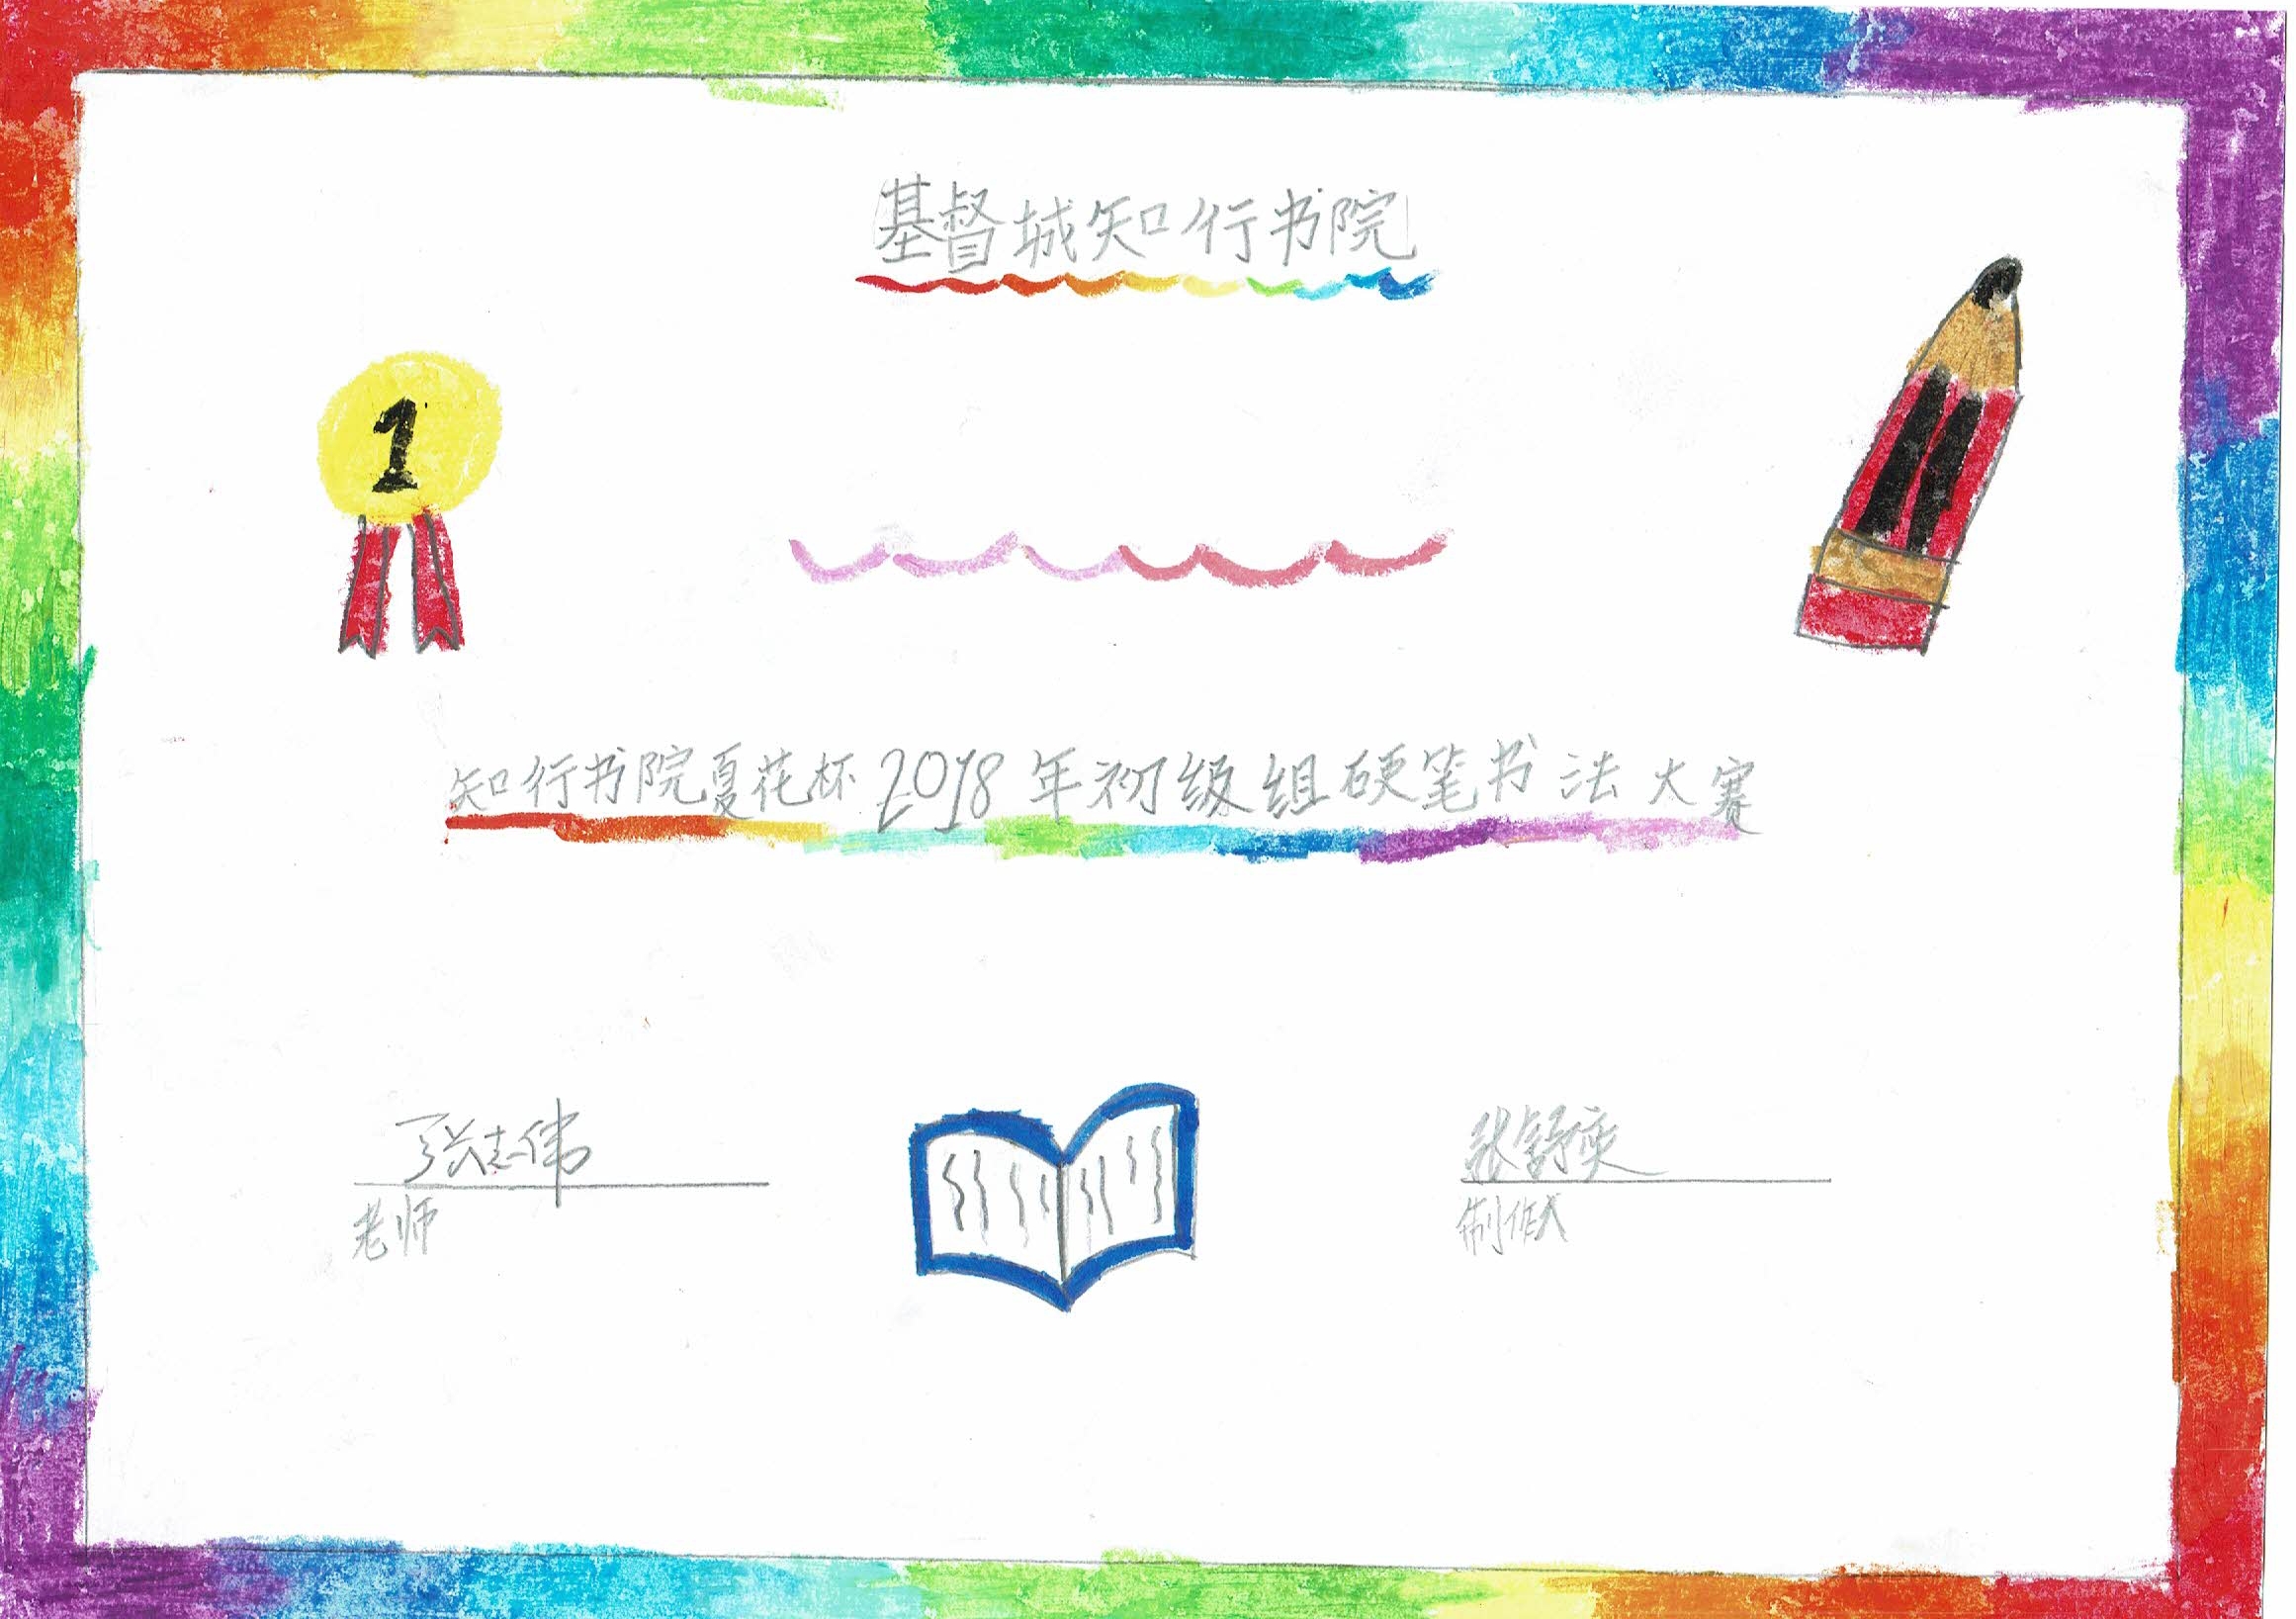 基督城知行书院
1
知行书院夏花杯2018年初级组硬笔书法大赛
张志伟
张舒奕
老师
制作人